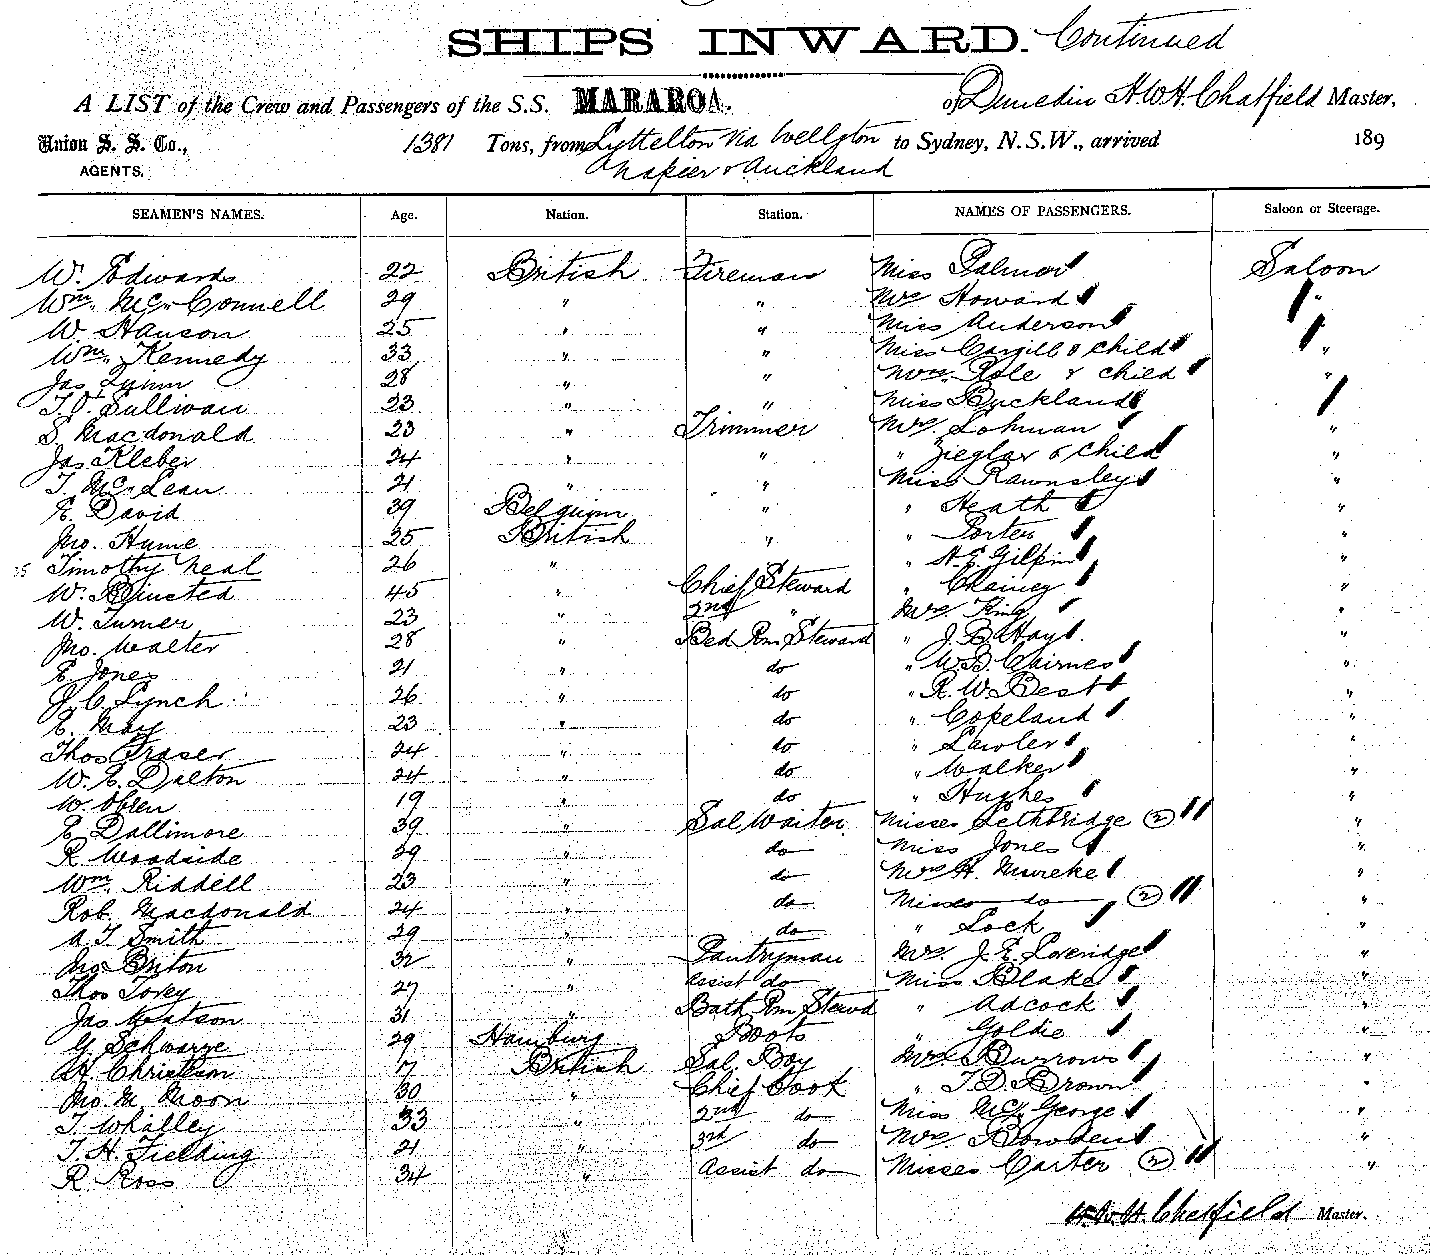 SHIPS INWARD. Continued
A LIST of the Crew and Passengers of the S.S. MARAROA. of Dunedin H.W.H. Chatfield Master,
Union S. S. Co., 1381 Tons, from Lyttelton via Wellgton to Sydney, N.S.W., arrived 189
AGENTS. Napier & Auckland
SEAMEN'S NAMES. Age. Nation. Station. NAMES OF PASSENGERS. Saloon or Steerage.
W. Edwards 22 British Fireman Miss Palmer Saloon
Wm. McConnell 29 " " Mrs Howard "
W. Hanson 25 " " Miss Anderson
Wm. Kennedy 33 " " Miss Cargill & child "
Jas Quinn 28 " " & child "
T. O'Sullivan 23 " " Miss Buckland
S. Macdonald 23 " Trimmer Mrs Lohman "
Jas Kleber 24 " " " Zieglar & child "
T. McLean 21 " " Miss Rawnsley "
E. David 39 Belguim " " Heath "
Jno. Hume 25 British " " Porter "
Timothy Neal 26 " " H. E. Gilpin "
W. Binsted 45 " Chief Steward " Chainey "
W. Turner 23 " 2nd " Mrs King "
Jno. Walter 28 " Bed Rm Steward " J. B. Hay "
E. Jones 21 " do " W. B. Cairnes "
J. C. Lynch 26 " do " R. W. Best "
E. May 23 " do " Copeland "
Thos Fraser 24 " do " Lawler "
W. E. Dalton 24 " do " Walker "
W. Obren 19 " do " Hughes "
E. Dallimore 39 " Sal Waiter Misses Lethbridge (2) "
R. Woodside 29 " do Miss Jones "
Wm Riddell 23 " do Mrs H. Mureke "
Rob. Macdonald 24 " do Misses do (2) "
A. T. Smith 29 " do " Lock "
Jno Briton 32 " Pantryman Mrs. J. E. Loveridge "
Thos Tovey 27 " Assist do Miss Blake "
Jas Watson 31 " Bath Rm Stewd " Adcock "
G. Schwarze 29 Hamburg Boots " Goldie "
H. Christison 17 British Sal. Boy Mrs. Burrows "
Jno. M. Moon 30 " Chief Cook " T. D. Brown "
T. Whalley 33 " 2nd do Miss McGeorge "
T. H. Fielding 21 " 3rd do Mrs Bowden "
R. Ross 34 " Assist do Misses Carter (2) "
H.W.H. Chatfield Master.